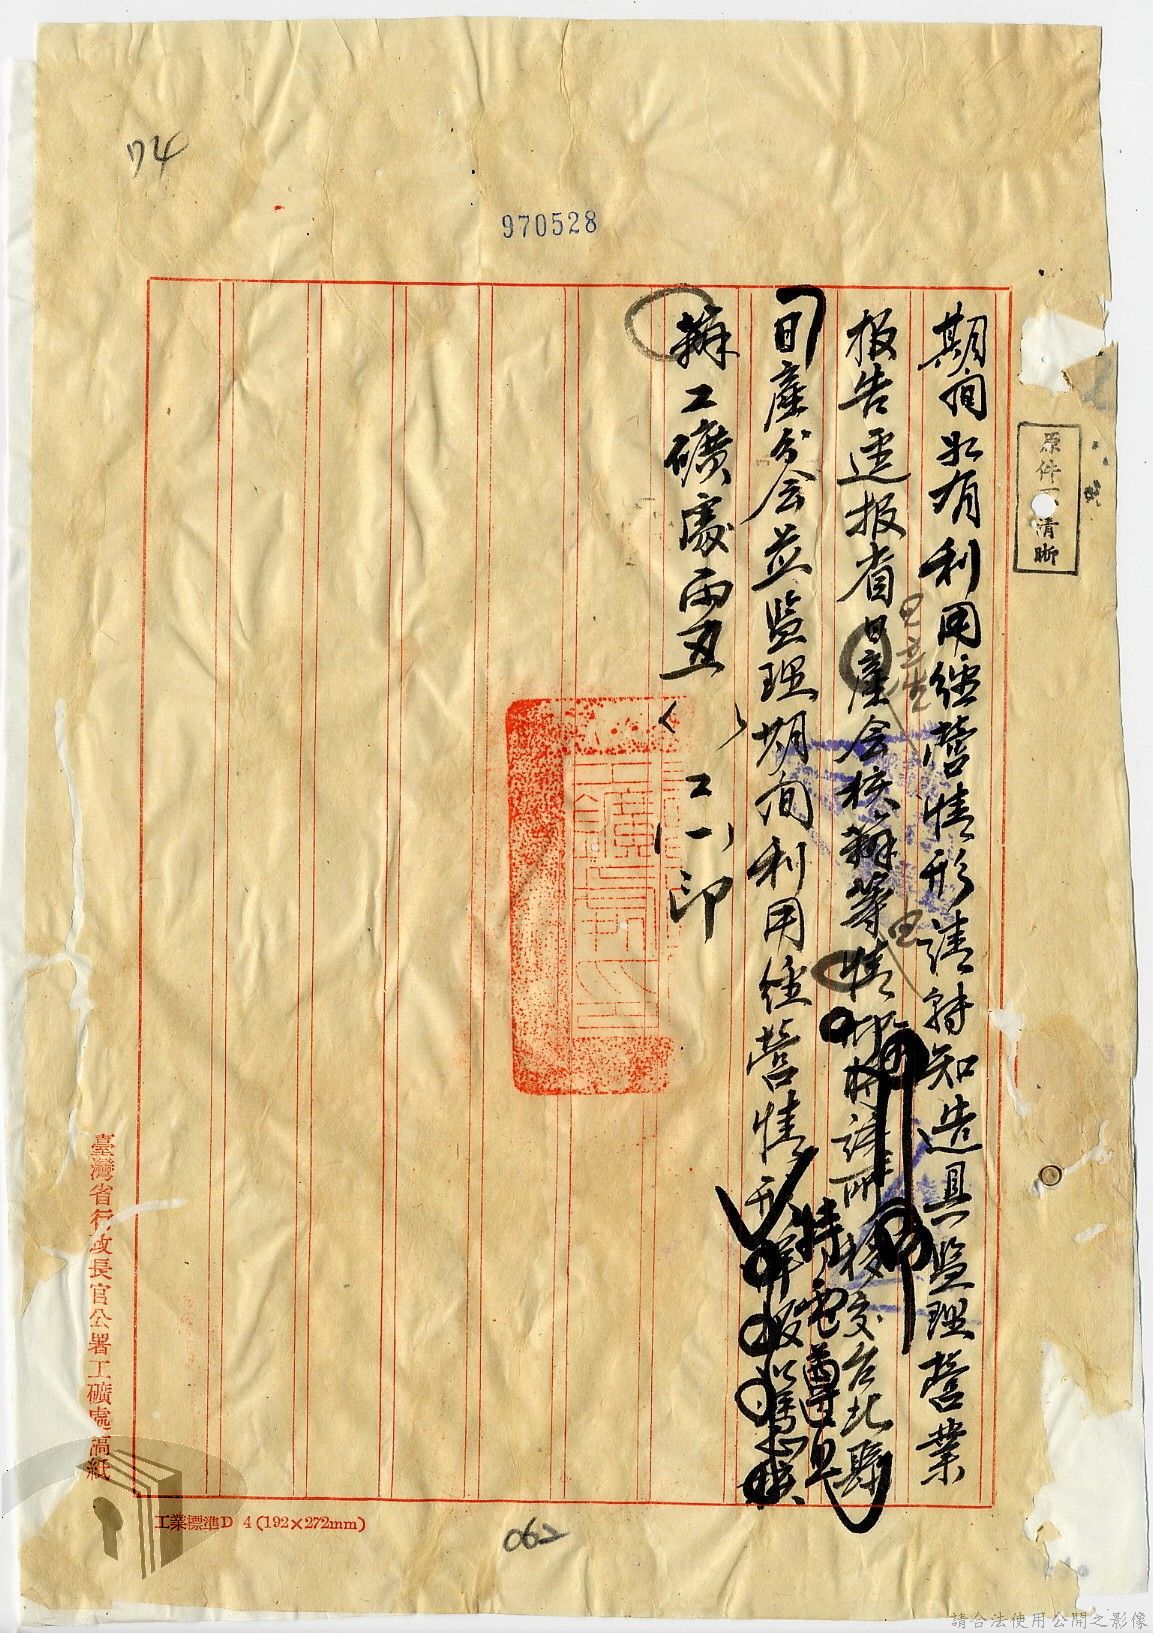 74
970528
原件不清晰
期間如有利用經營情形請轉知造具監理營業
報告逕報省日產會核辦等情
移交台北縣
日產分會並監理期間利用經營情形
特電遵照
辦工礦處丙丑( )工(一)印
臺灣省行政長官公署工礦處稿紙
工業標準D 4 (192×272mm)
062
請合法使用公開之影像